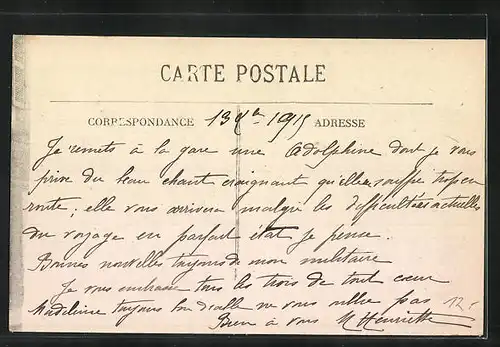 CARTE POSTALE
CORRESPONDANCE 13 1915 ADRESSE
Je remets à la gare une Adolphine dont je vous
prive du beau chant craignant qu'elle souffre trop en
route; elle vous arrivera malgré les difficultées actuelles
du voyage en parfait état je pense.
Bonnes nouvelles toujours de mon militaire
Je vous embrasse tous les trois de tout coeur
Madeleine toujours ne vous oublie pas 12.-
Bien à vous Henriette